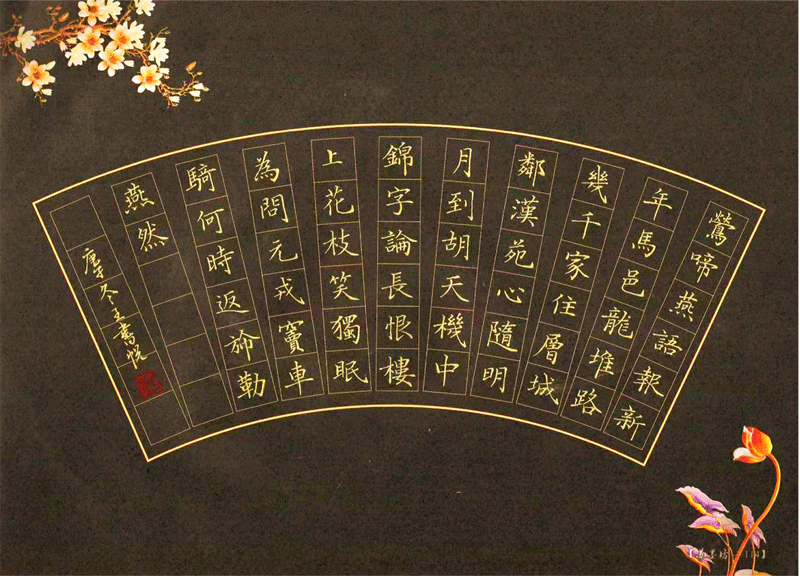 鶯啼燕語報新
年馬邑龍堆路
幾千家住層城
鄰漢苑心隨明
月到胡天機中
錦字論長恨樓
上花枝笑獨眠
為問元戎竇車
騎何時返斾勒
燕然
冬王書悅